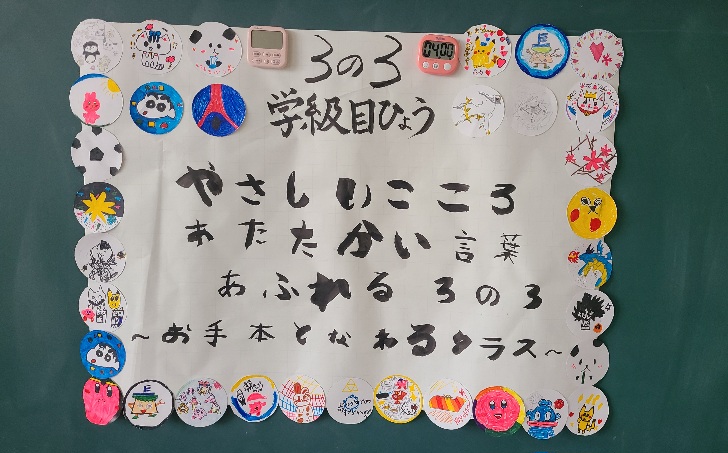 3の3
04:00
学級目ひょう
やさしいこころ
あたたかい言葉
あふれる 3の3
～お手本となれるクラス～